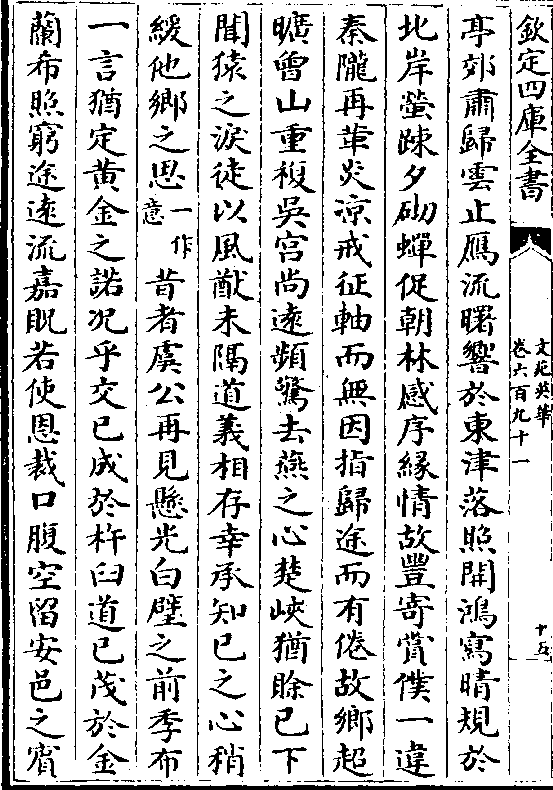 欽定四庫全書
文苑英華
卷六百九十一
十五
亭郊肅歸雲止雁流曙響於東津落照開鴻寫晴規於
北岸螢踈夕砌蟬促朝林感序緣情故豐寄賞僕一違
秦隴再革炎涼戒征軸而無因指歸途而有倦故鄉超
曠曾山重複吳宫尚遠頻驚去燕之心楚峽猶賒已下
聞猿之淚徒以風猷未隔道義相存幸承知已之心稍
緩他鄉之思一作意昔者虞公再見懸光白璧之前季布
一言猶定黄金之諾况乎交已成於杵臼道已茂於金
蘭布照窮途逺流嘉貺若使恩裁口腹空留安邑之賔